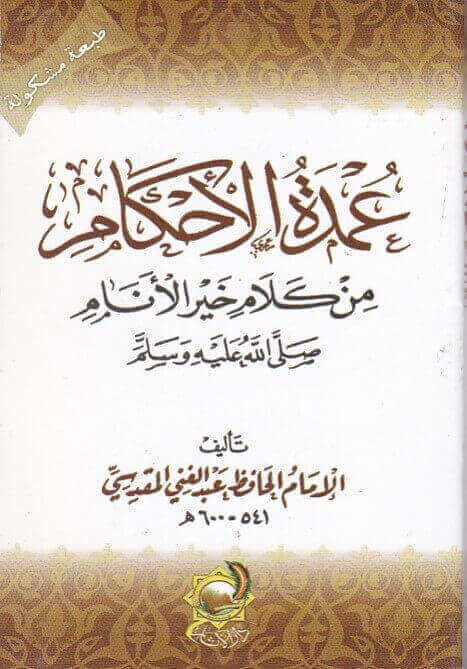 طبعة مشكولة
عُمْدَةُ الأَحْكَامِ
مِنْ كَلَامِ خَيْرِ الأَنَامِ
صَلَّى اللَّهُ عَلَيْهِ وَسَلَّمَ
تَأليف
الإمَامُ الحَافظ عَبْد الغَني المقدِسِيّ
٥٤١ - ٦٠٠ هـ